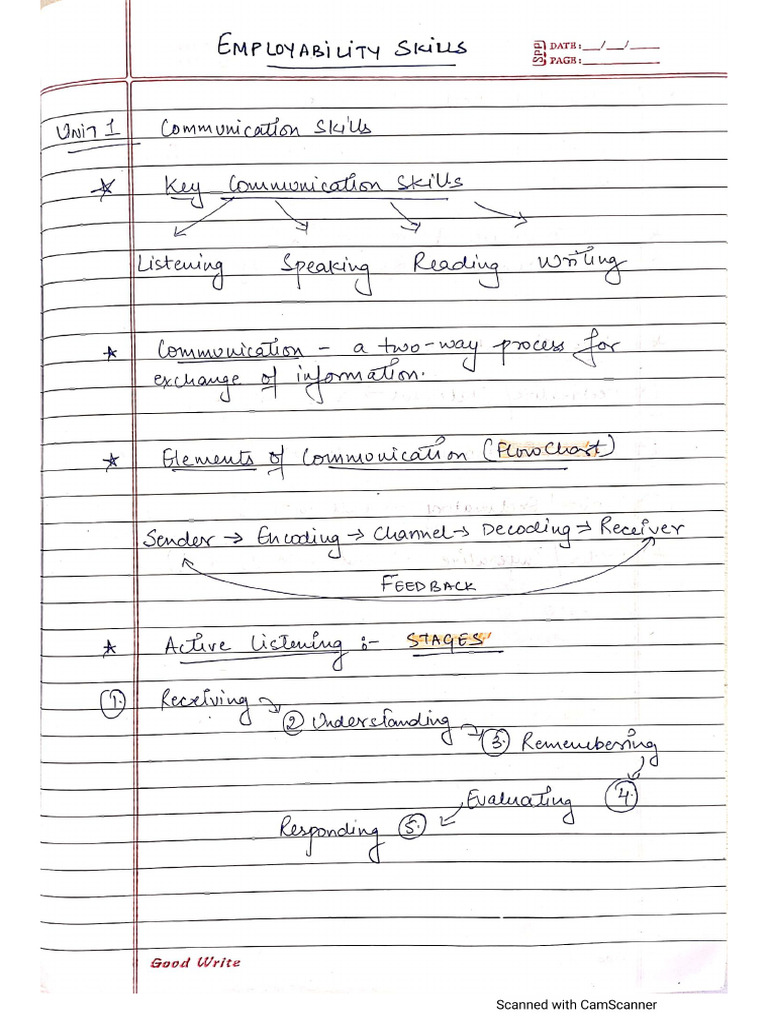 EMPLOYABILITY SKILLS
SPP DATE:__/__/____
PAGE:__________
UNIT 1 Communication Skills
☆ Key Communication Skills
Listening Speaking Reading Writing
★ Communication – a two-way process for
exchange of information.
★ Elements of Communication (FlowChart)
Sender → Encoding → Channel → Decoding → Receiver
FEEDBACK
★ Active Listening :- STAGES
1. Receiving
2 Understanding
3. Rememebering
Evaluating 4.
Responding 5.
Good Write
Scanned with CamScanner